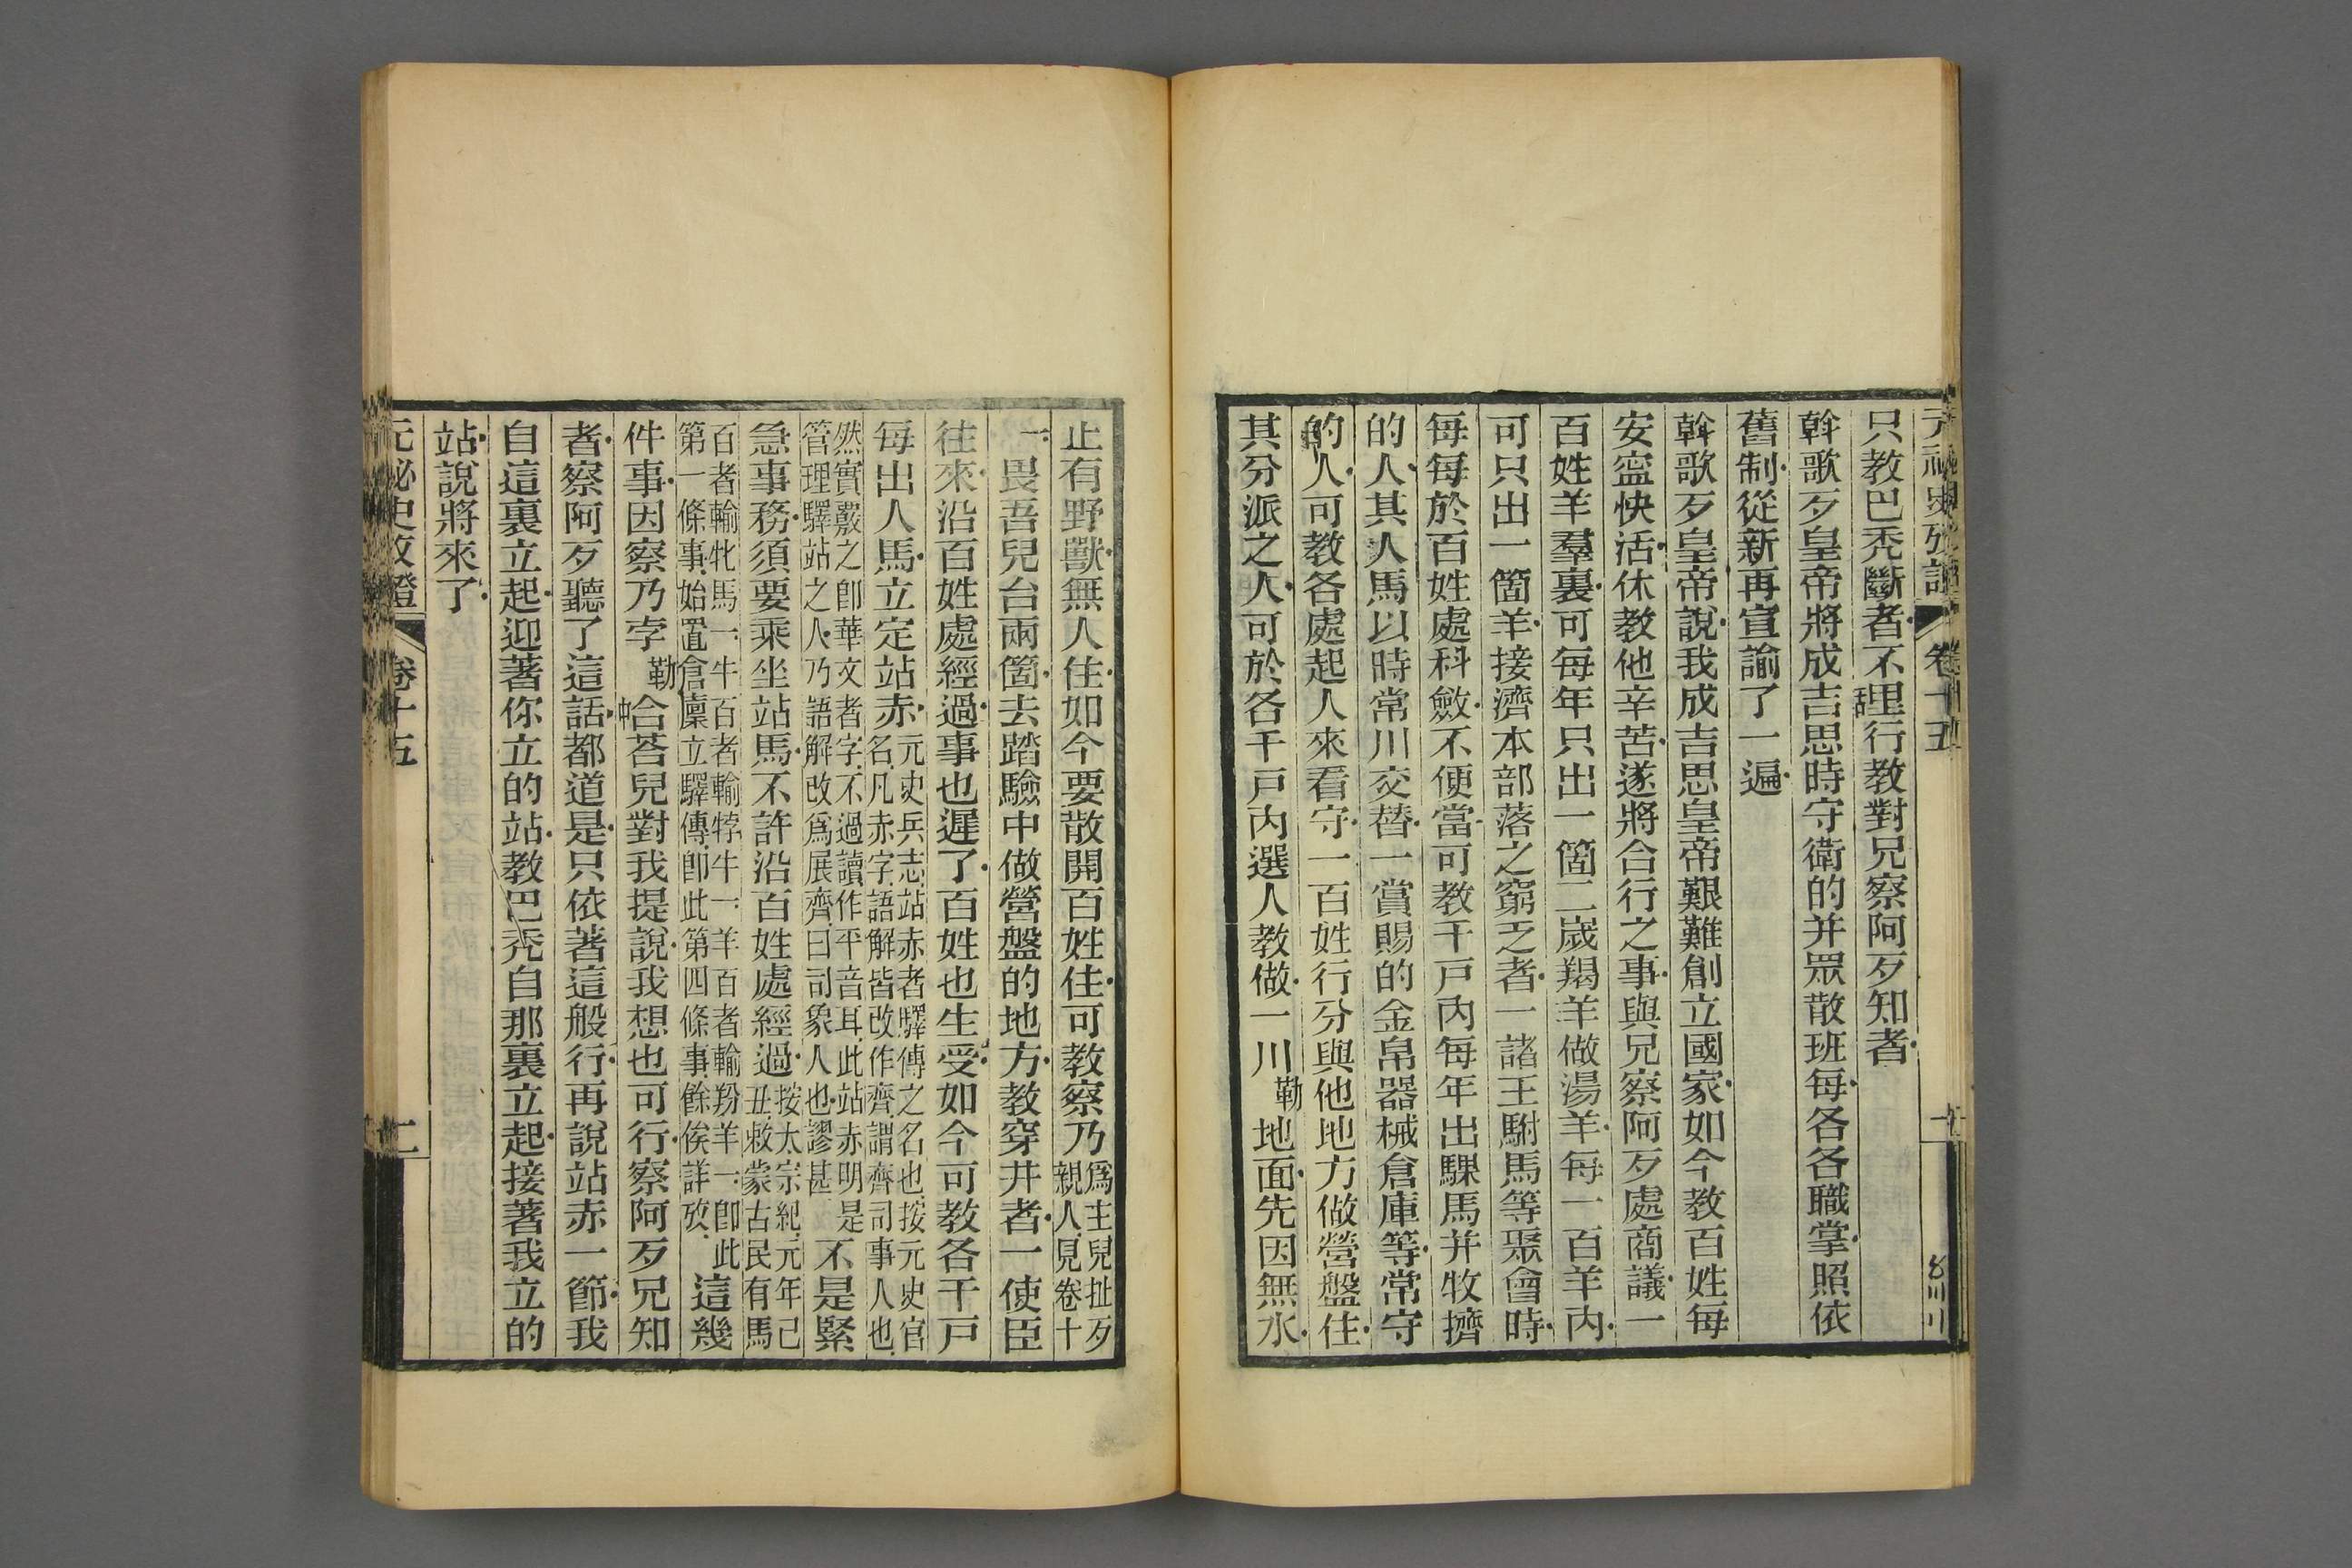 元祕史攷證 卷十五
只教巴禿斷者不理行教對兄察阿歹知者
斡歌歹皇帝將成吉思時守衛的并眾散班每各各職掌照依
舊制從新再宣諭了一遍
斡歌歹皇帝說我成吉思皇帝艱難創立國家如今教百姓每
安寍快活休教他辛苦遂將合行之事與兄察阿歹處商議一
百姓羊羣裏可每年只出一箇二歲羯羊做湯羊每一百羊內
可只出一箇羊接濟本部落之窮乏者一諸王駙馬等聚會時
每每於百姓處科斂不便當可教千戶內每年出騍馬并牧擠
的人其人馬以時常川交替一賞賜的金帛器械倉庫等常守
的人可教各處起人來看守一百姓行分與他地方做營盤住
其分派之人可於各千戶內選人教做一川勒地面先因無水
止有野獸無人住如今要散開百姓住可教察乃爲主兒扯歹親人見卷十
一畏吾兒台兩箇去踏驗中做營盤的地方教穿井者一使臣
往來沿百姓處經過事也遲了百姓也生受如今可教各千戶
每出人馬立定站赤元史兵志站赤者驛傳之名也按元史官名凡赤字語解皆改作齊謂齊司事人也
然實嚴之卽華文者字不過讀作平音耳此站赤明是管理驛站之人乃語解改爲展齊曰司象人也謬甚不是緊
急事務須要乘坐站馬不許沿百姓處經過按太宗紀元年己丑敕蒙古民有馬
百者輸牝馬一牛百者輸牸牛一羊百者輸羒羊一卽此第一條事始置倉廩立驛傳卽此第四條事餘俟詳攷這幾
件事因察乃孛勒中合荅兒對我提說我想也可行察阿歹兄知
者察阿歹聽了這話都道是只依著這般行再說站赤一節我
自這裏立起迎著你立的站教巴禿自那裏立起接著我立的
站說將來了
元祕史攷證 卷十五 二